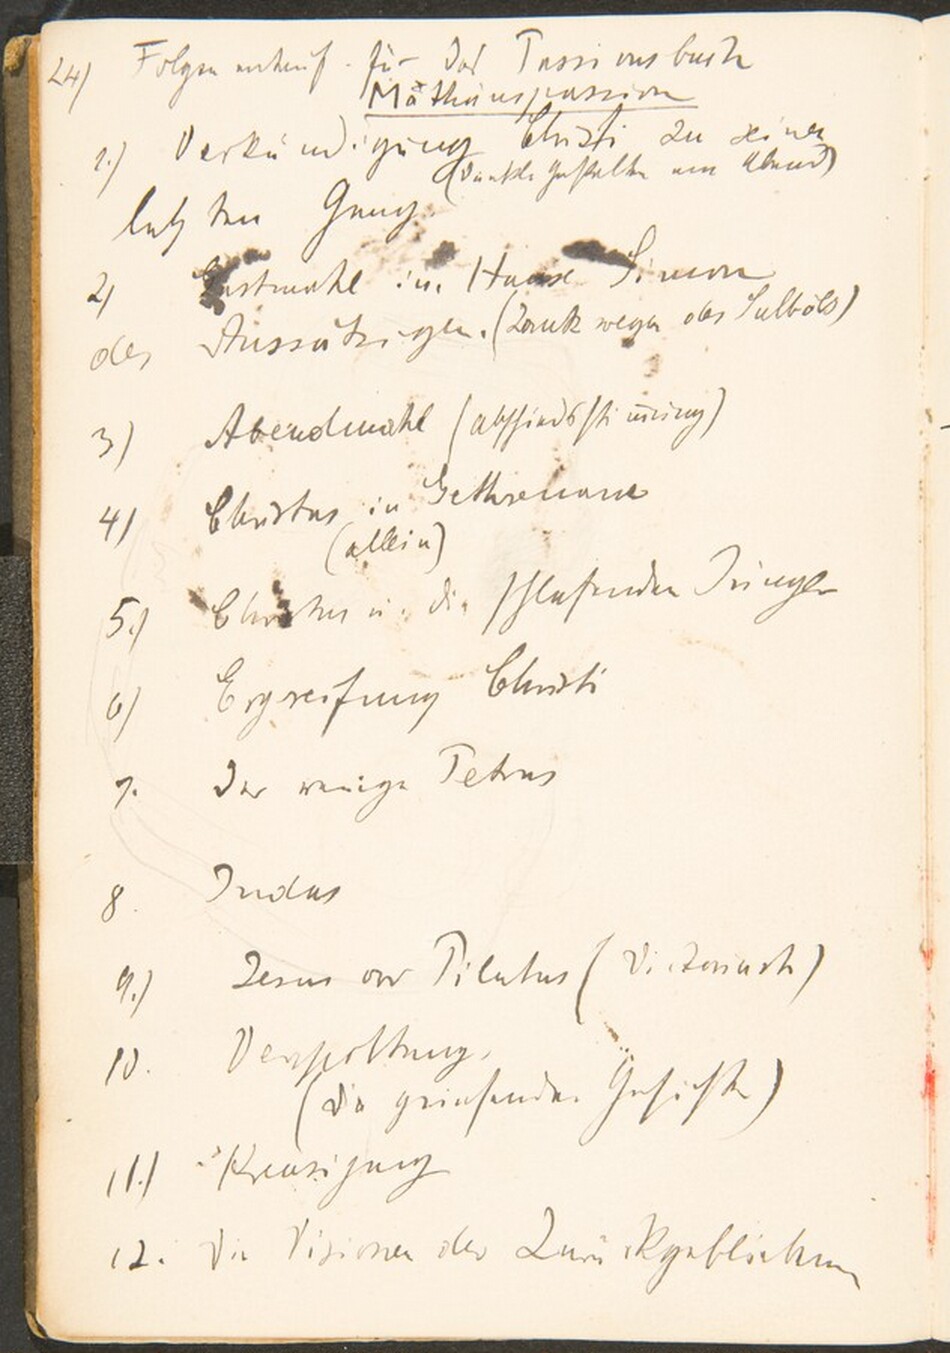 24) Folgenentwurf für das Passionsbuch
Mathäuspassion
1.) Verkündigung Christi zu seinen
(dunkle Gestalten am Abend)
letzten Gang
2) Gastmahl im Hause Simon
des Aussätzigen. (Zank wegen des Salböls)
3) Abendmahl (Abschiedsstimmung)
4) Christus in Gethsemane
(allein)
5.) Christus u. die schlafenden Jünger
6) Ergreifung Christi
7. Der weinige Petrus
8. Judas
9.) Jesus vor Pilatus
10. Verspottung.
(Die grinsenden Gesichter)
11.) Kreuzigung
12. Die Visionen der Zurückgebliebenen